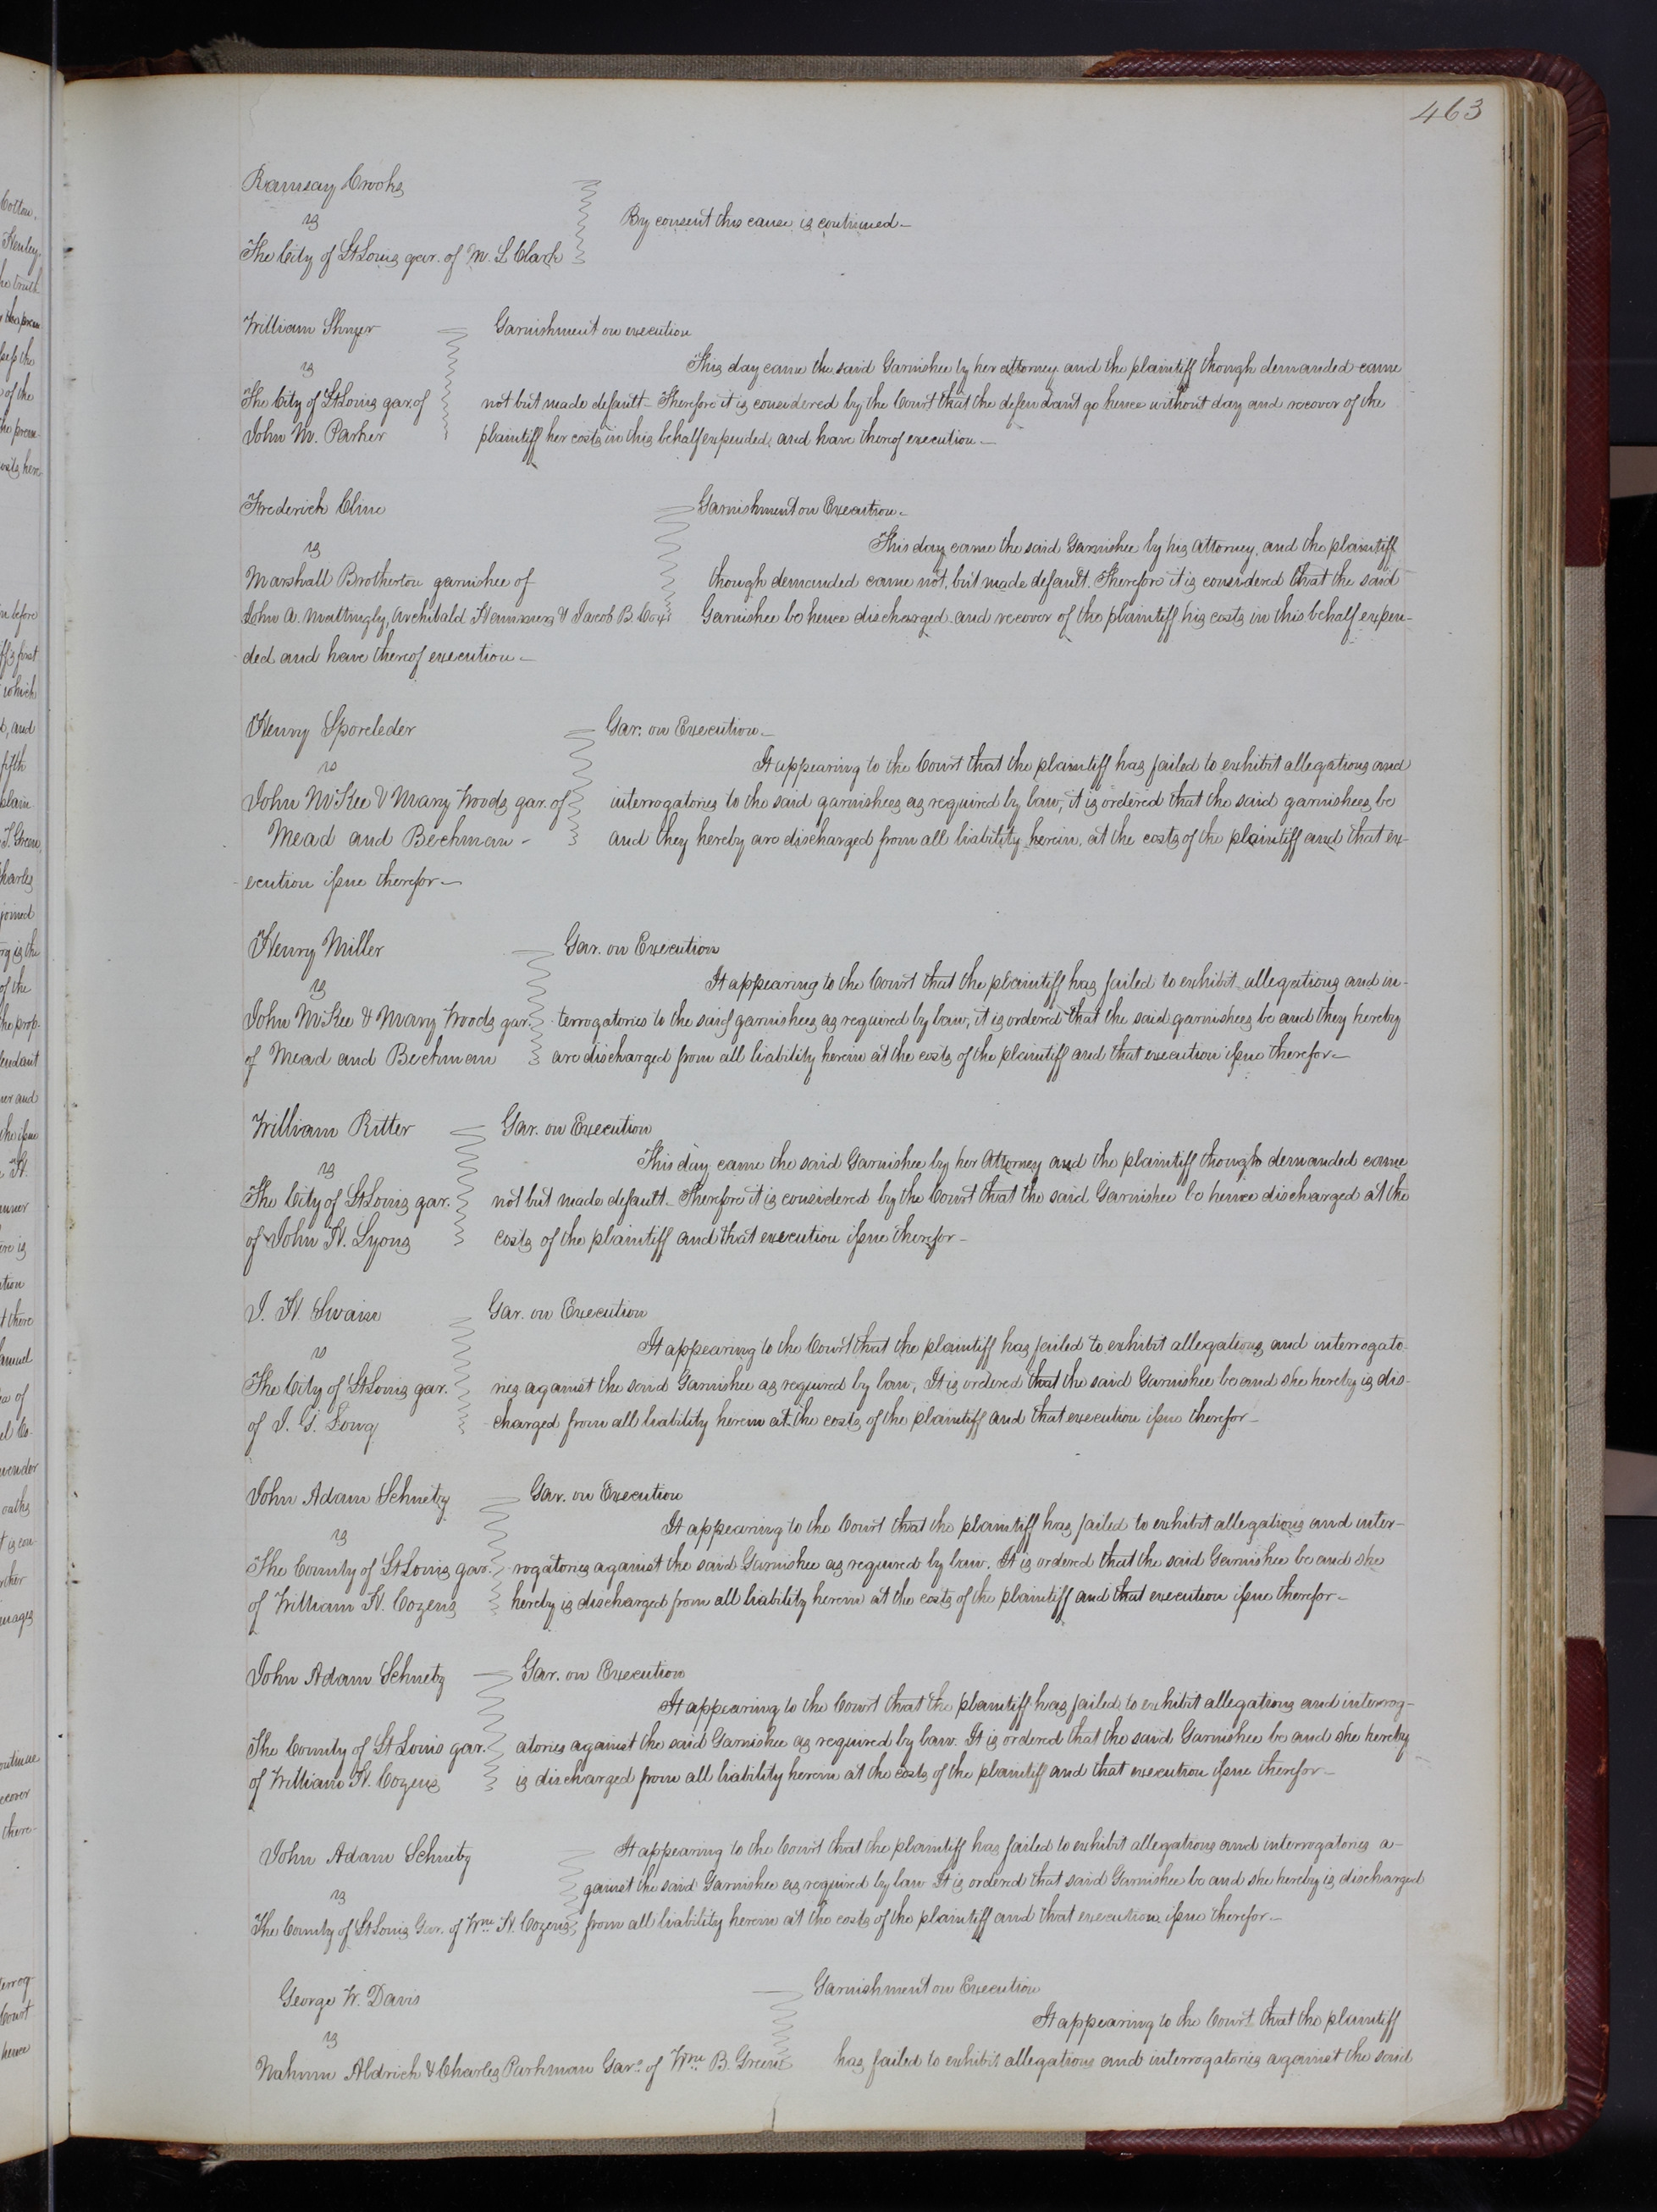 463
Ramsay Crooks
vs
By consent this cause is continued—
The City of St Louis gar. of M. L. Clark
William Shyer Garnishment on execution
This day came the said Garnishee by her attorney and the plaintiff though demanded came
vs
The City of St Louis gar. of not but made default— Therefore it is considered by the Court that the defendant go hence without day and recover of the
John M. Parker plaintiff her costs in this behalf expended, and have thereof execution.—
Frederick Cline Garnishment on Execution.—
This day came the said Garnishee by his Attorney, and the plaintiff
vs
Marshall Brotherton garnishee of though demanded came not, but made default. Therefore it is considered that the said
John A. Mattingly, Archibald & Jacob B. Cox Garnishee be hence discharged and recover of the plaintiff his costs in this behalf expen-
ded and have thereof execution.—
Henry Sporleder Gar. on Execution.—
It appearing to the Court that the plaintiff has failed to exhibit allegations and
vs
John McKee & Mary Woods gar. of interrogatories to the said garnishees as required by law, it is ordered that the said garnishees be
Mead and Beckman - and they hereby are discharged from all liability herein, at the costs of the plaintiff and that ex-
ecution issue therefor—
Henry Miller Gar. on Execution
It appearing to the Court that the plaintiff has failed to exhibit allegations and in-
vs
John McKee & Mary Woods gar. terrogatories to the said garnishees as required by law, it is ordered that the said garnishees be and they hereby
of Mead and Beckman are discharged from all liability herein at the costs of the plaintiff and that execution issue therefor—
William Ritter Gar. on Execution
This day came the said Garnishee by her Attorney and the plaintiff though demanded came
vs
The City of St Louis gar. not but made default— Therefore it is considered by the Court that the said Garnishee be hence discharged at the
of John H. Lyons costs of the plaintiff and that execution issue therefor—
J. H. Swain Gar. on Execution
It appearing to the Court that the plaintiff has failed to exhibit allegations and interrogato-
vs
The City of St Louis gar. ries against the said Garnishee as required by law, It is ordered that the said Garnishee be and she hereby is dis-
of J. G. Long charged from all liability herein at the costs of the plaintiff and that execution issue therefor—
John Adam Schnetz Gar. on Execution
It appearing to the Court that the plaintiff has failed to exhibit allegations and inter-
vs
The County of St Louis gar. rogatories against the said Garnishee as required by law. It is ordered that the said Garnishee be and she
of William H. Cozens hereby is discharged from all liability herein at the costs of the plaintiff and that execution issue therefor—
John Adam Schnetz Gar. on Execution
It appearing to the Court that the plaintiff has failed to exhibit allegations and interrog-
The County of St Louis gar. atories against the said Garnishee as required by law. It is ordered that the said Garnishee be and she hereby
of William H. Cozens is discharged from all liability herein at the costs of the plaintiff and that execution issue therefor—
John Adam Schnetz It appearing to the Court that the plaintiff has failed to exhibit allegations and interrogatories a-
vs gainst the said Garnishee as required by law It is ordered that said Garnishee be and she hereby is discharged
The County of St Louis Gar. of Wm H. Cozens from all liability herein at the costs of the plaintiff and that execution issue therefor—
George W. Davis Garnishment on Execution
It appearing to the Court that the plaintiff
vs
Nahum Aldrich & Charles Parkman Gars. of Wm B. Green has failed to exhibit allegations and interrogatories against the said